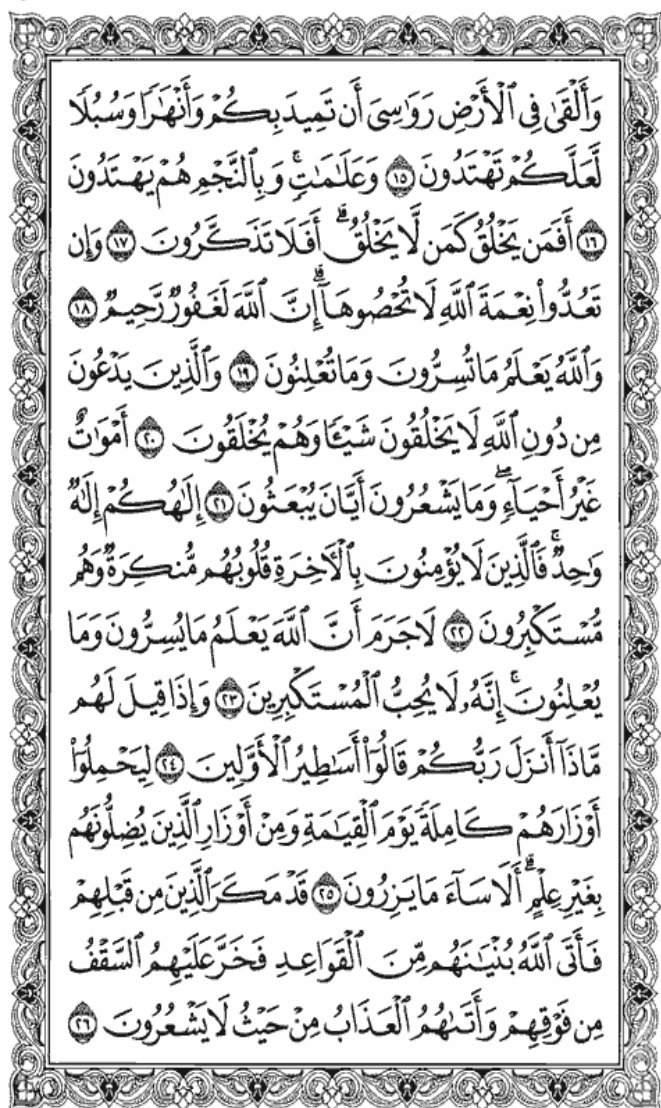 وَأَلْقَىٰ فِى ٱلْأَرْضِ رَوَٰسِىَ أَن تَمِيدَ بِكُمْ وَأَنْهَٰرًا وَسُبُلًا
لَّعَلَّكُمْ تَهْتَدُونَ ١٥ وَعَلَٰمَٰتٍۚ وَبِٱلنَّجْمِ هُمْ يَهْتَدُونَ
١٦ أَفَمَن يَخْلُقُ كَمَن لَّا يَخْلُقُۗ أَفَلَا تَذَكَّرُونَ ١٧ وَإِن
تَعُدُّوا۟ نِعْمَةَ ٱللَّهِ لَا تُحْصُوهَآۗ إِنَّ ٱللَّهَ لَغَفُورٌ رَّحِيمٌ ١٨
وَٱللَّهُ يَعْلَمُ مَا تُسِرُّونَ وَمَا تُعْلِنُونَ ١٩ وَٱلَّذِينَ يَدْعُونَ
مِن دُونِ ٱللَّهِ لَا يَخْلُقُونَ شَيْـًٔا وَهُمْ يُخْلَقُونَ ٢٠ أَمْوَٰتٌ
غَيْرُ أَحْيَآءٍۖ وَمَا يَشْعُرُونَ أَيَّانَ يُبْعَثُونَ ٢١ إِلَٰهُكُمْ إِلَٰهٌ
وَٰحِدٌۚ فَٱلَّذِينَ لَا يُؤْمِنُونَ بِٱلْـَٔاخِرَةِ قُلُوبُهُم مُّنكِرَةٌ وَهُم
مُّسْتَكْبِرُونَ ٢٢ لَا جَرَمَ أَنَّ ٱللَّهَ يَعْلَمُ مَا يُسِرُّونَ وَمَا
يُعْلِنُونَۚ إِنَّهُۥ لَا يُحِبُّ ٱلْمُسْتَكْبِرِينَ ٢٣ وَإِذَا قِيلَ لَهُم
مَّاذَآ أَنزَلَ رَبُّكُمْ قَالُوٓا۟ أَسَٰطِيرُ ٱلْأَوَّلِينَ ٢٤ لِيَحْمِلُوٓا۟
أَوْزَارَهُمْ كَامِلَةً يَوْمَ ٱلْقِيَٰمَةِ وَمِنْ أَوْزَارِ ٱلَّذِينَ يُضِلُّونَهُم
بِغَيْرِ عِلْمٍۗ أَلَا سَآءَ مَا يَزِرُونَ ٢٥ قَدْ مَكَرَ ٱلَّذِينَ مِن قَبْلِهِمْ
فَأَتَى ٱللَّهُ بُنْيَٰنَهُم مِّنَ ٱلْقَوَاعِدِ فَخَرَّ عَلَيْهِمُ ٱلسَّقْفُ
مِن فَوْقِهِمْ وَأَتَىٰهُمُ ٱلْعَذَابُ مِنْ حَيْثُ لَا يَشْعُرُونَ ٢٦